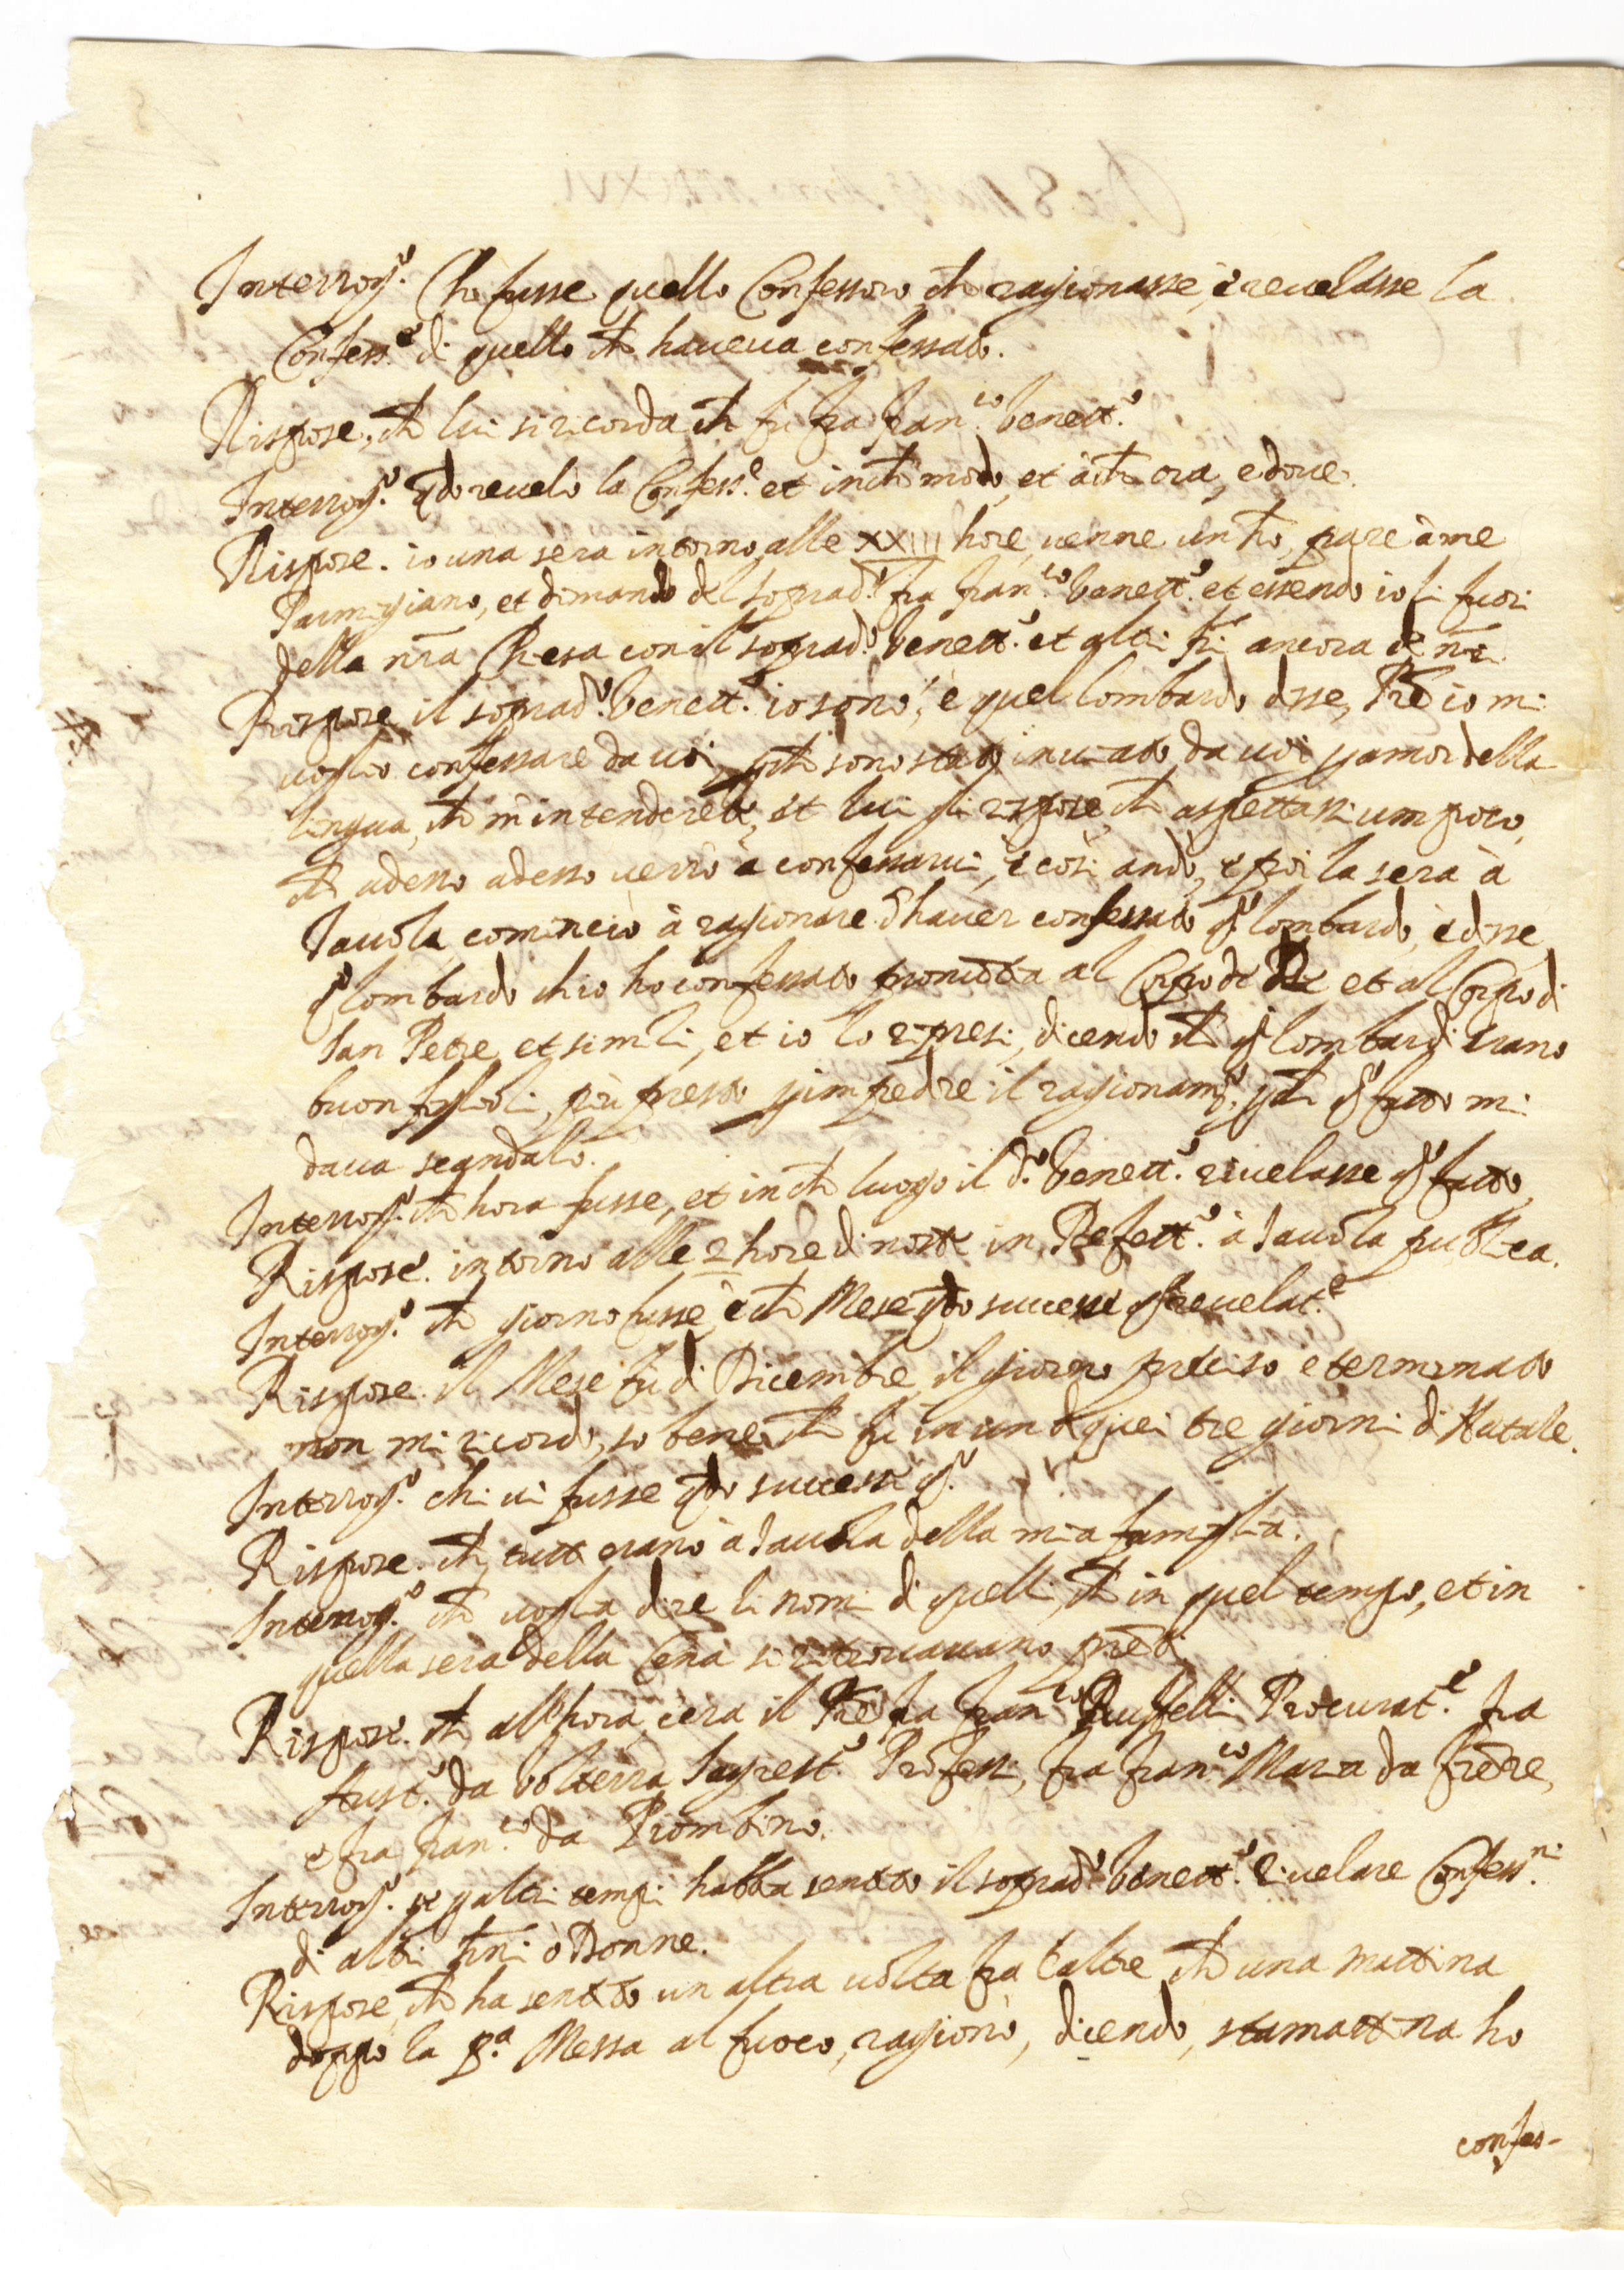 Interrog.º Chi fusse quello Confessore che ragionasse, è reuelasse la
Confess.e di quello che haueua confessato.
Rispose, che lui si ricorda che fù fra Fran.co benett.º
Interrog.º qdo reuelò la Confess.e et in che modo, et à che ora, e doue.
Rispose. io una sera intorno alle XXIIII hore, uenne un hõ, pare à me
Parmigiano, et dimandò del soprad.º fra Fran.co benett.º et essendo io lì fuori
della nr̃a Chiesa con il soprad.º benett.º et altri fri ancora de nr̃i
Rispose il soprad.º benett.º io sono, è quel lombardo disse, Prẽ io mi
uoglio confessare da uoi, pche sono stato inuiato da uoi p amor della
lingua, che m'intenderete, et lui gli rispose, che aspettassi um poco,
che adesso adesso uerrò à confessarui, è così andò, e poi la sera à
Tauola cominciò à ragionare d'hauer confessato qº lombardo, è disse
qº lombardo ch'io ho confessato pronuntia al Corpo di Dio et al Corpo di
San Petre, et simili, et io lo ripresi, dicendo che qi lombardi erano
buon figlioli, più presto p impedire il ragionam.º pche qº fatto mi
daua scandalo.
Interrog.º che hora fusse, et in che luogo il d.º benett.º riuelasse qº fatto,
Rispose. intorno alle 2 hore di notte in Refett.º à Tauola publica.
Interrog.º che giorno fusse, è che Mese qdo successe qª reuelat.e
Rispose. il Mese fù di Dicembre, il giorno preciso e terminato
non mi ricordo, so bene che fù in un di quei tre giorni di Natale.
Interrog.º chi ui fusse qdo successe qº.
Rispose. che tutti erano à Tauola della mia famiglia.
Interrog.º che uoglia dire li nomi di quelli, che in quel tempo, et in
quella sera della Cena si ritrouauano pñti.
Rispose. che all'hora, c'era il Prẽ fra Fran.co Procurat.e fra
Aust.º da Volterra Sagrest.º Professi, fra Fran.co Maria da
e fra Fran.co da Piombino.
Interrog.º se p altri tempi habbia sentito il soprad.º benett.º riuelare Confess.ni
di altri hñi ò Donne.
Rispose, che ha sentito un altra uolta fra l'altre che una mattina
doppo la p.a Messa al fuoco, ragionò, dicendo, stamattina ho
confes-